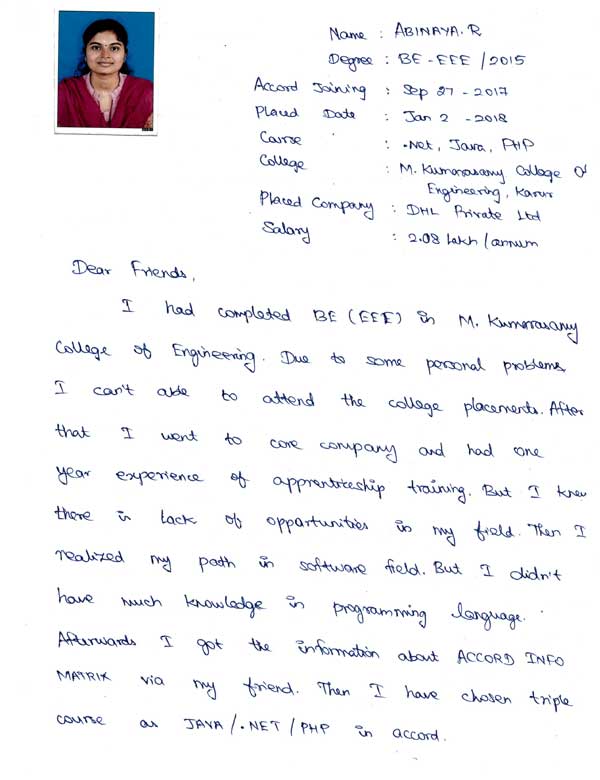 Name : ABINAYA.R
Degree : BE-EEE/2015
Accord Joining : Sep 27-2017
Placed Date : Jan 2 -2018
Course : .Net, Java, PHP
College : M. Kumarasamy College Of
Engineering, Karur
Placed Company : DHL Private Ltd
Salary : 2.08 Lakh/annum
Dear Friends,
I had completed BE (EEE) in M. Kumarasamy
College of Engineering. Due to some personal problems
I can't able to attend the college placements. After
that I went to core company and had one
year experience of apprenticeship training. But I knew
there is lack of oppartunities in my field. Then I
realized my path in software field. But I didn't
have much knowledge in programming language.
Afterwards I got the information about ACCORD INFO
MATRIX via my friend. Then I have chosen triple
course as JAVA/.NET/PHP in accord.